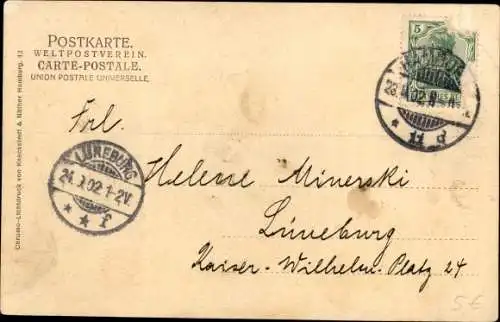 POSTKARTE.
WELTPOSTVEREIN.
CARTE-POSTALE.
UNION POSTALE UNIVERSELLE.
Chromo-Lichtdruck von Knackstedt & Näther Hamburg.
5
Frl.
LÜNEBURG
24. 02. 1-2V.
* * f
Helene Minerski
Lüneburg
Kaiser-Wilhelm-Platz 24
5€